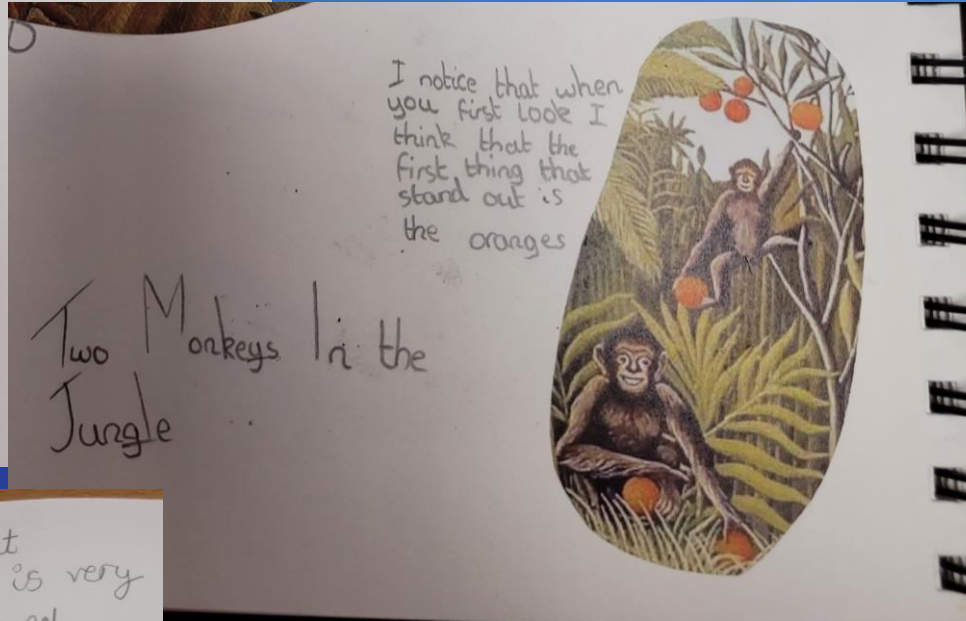 I notice that when
you first look I
think that the
first thing that
stand out is
the oranges
Two Monkeys In the
Jungle
is very